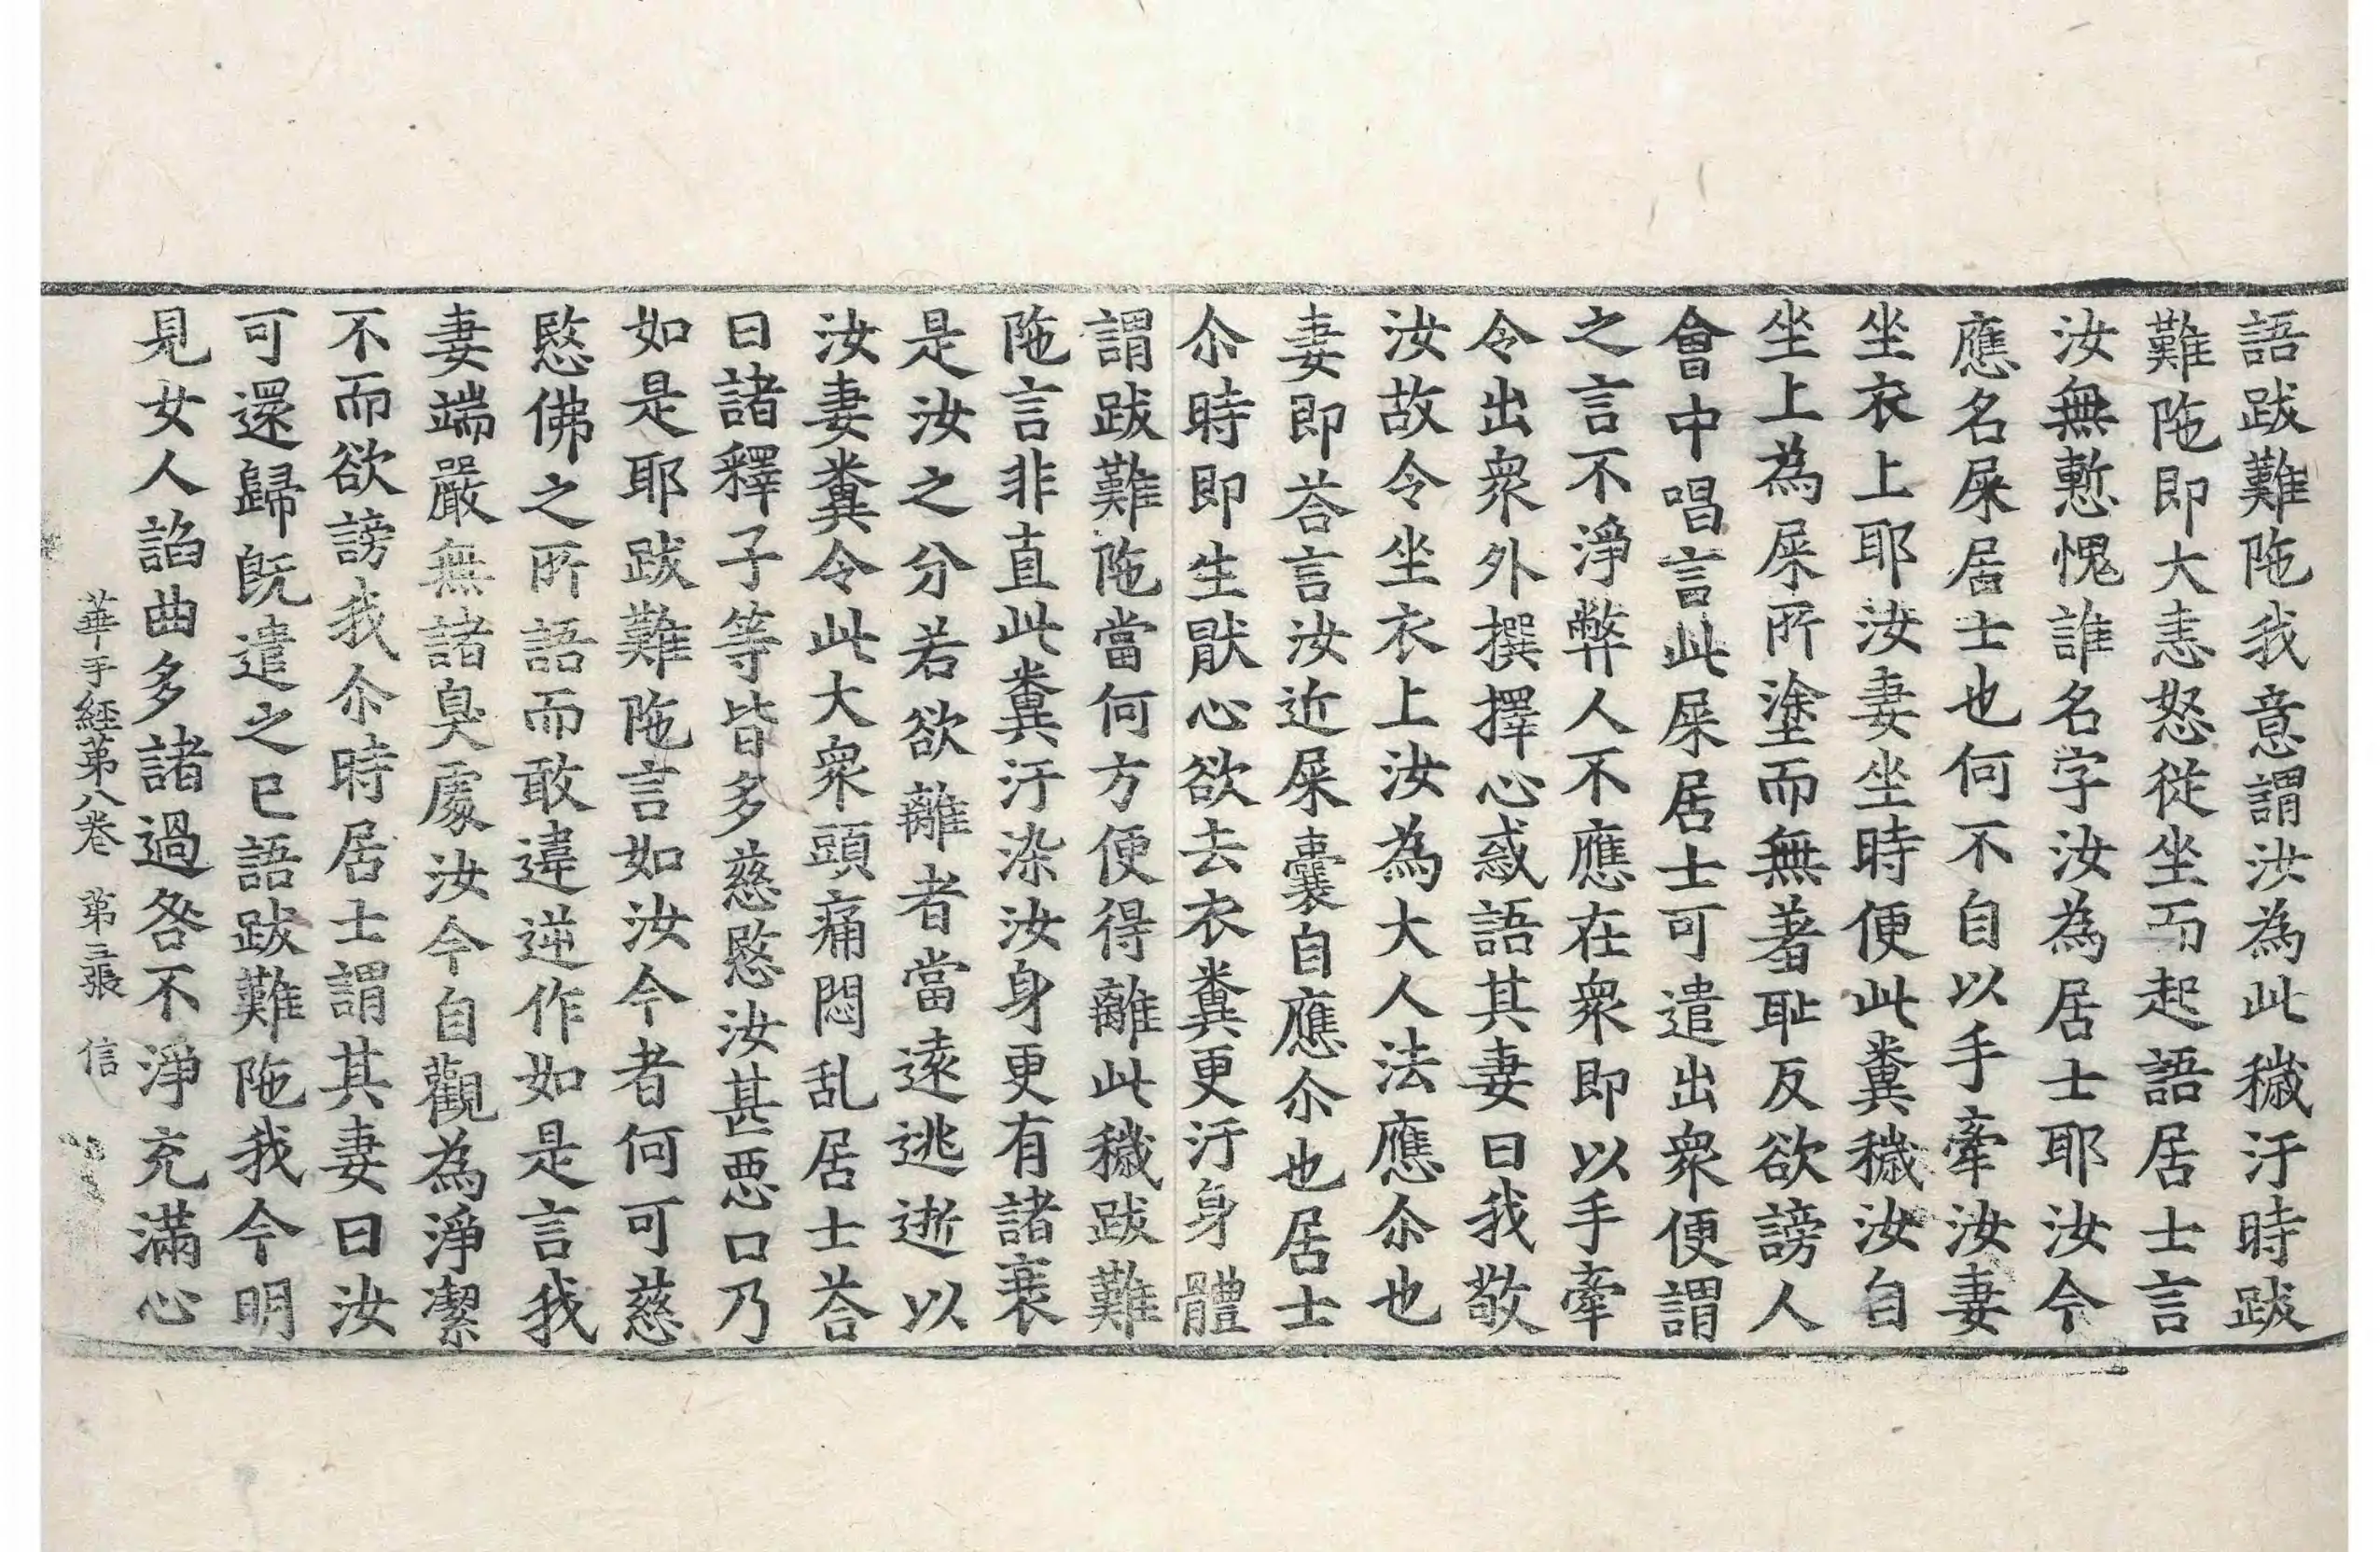 語跋難陁我意謂汝為此穢汙時跋
難陁即大恚怒從坐而起語居士言
汝無慙愧誰名字汝為居士耶汝今
應名屎居士也何不自以手牽汝妻
坐衣上耶汝妻坐時便此糞穢汝自
坐上為屎所塗而無著耻反欲謗人
會中唱言此屎居士可遣出衆便謂
之言不淨弊人不應在衆即以手牽
令出衆外撰擇心惑語其妻曰我敬
汝故令坐衣上汝為大人法應尒也
妻即荅言汝近屎囊自應尒也居士
尒時即生猒心欲去衣糞更汙身體
謂跋難陁當何方便得離此穢跋難
陁言非直此糞汙染汝身更有諸衰
是汝之分若欲離者當遠逃逝以
汝妻糞令此大衆頭痛悶乱居士荅
曰諸釋子等皆多慈愍汝甚惡口乃
如是耶跋難陁言如汝今者何可慈
愍佛之所語而敢違逆作如是言我
妻端嚴無諸臭處汝今自觀為淨潔
不而欲謗我尒時居士謂其妻曰汝
可還歸旣遣之已語跋難陁我今明
見女人諂曲多諸過咎不淨充滿心
華手經第八卷 第三張 信